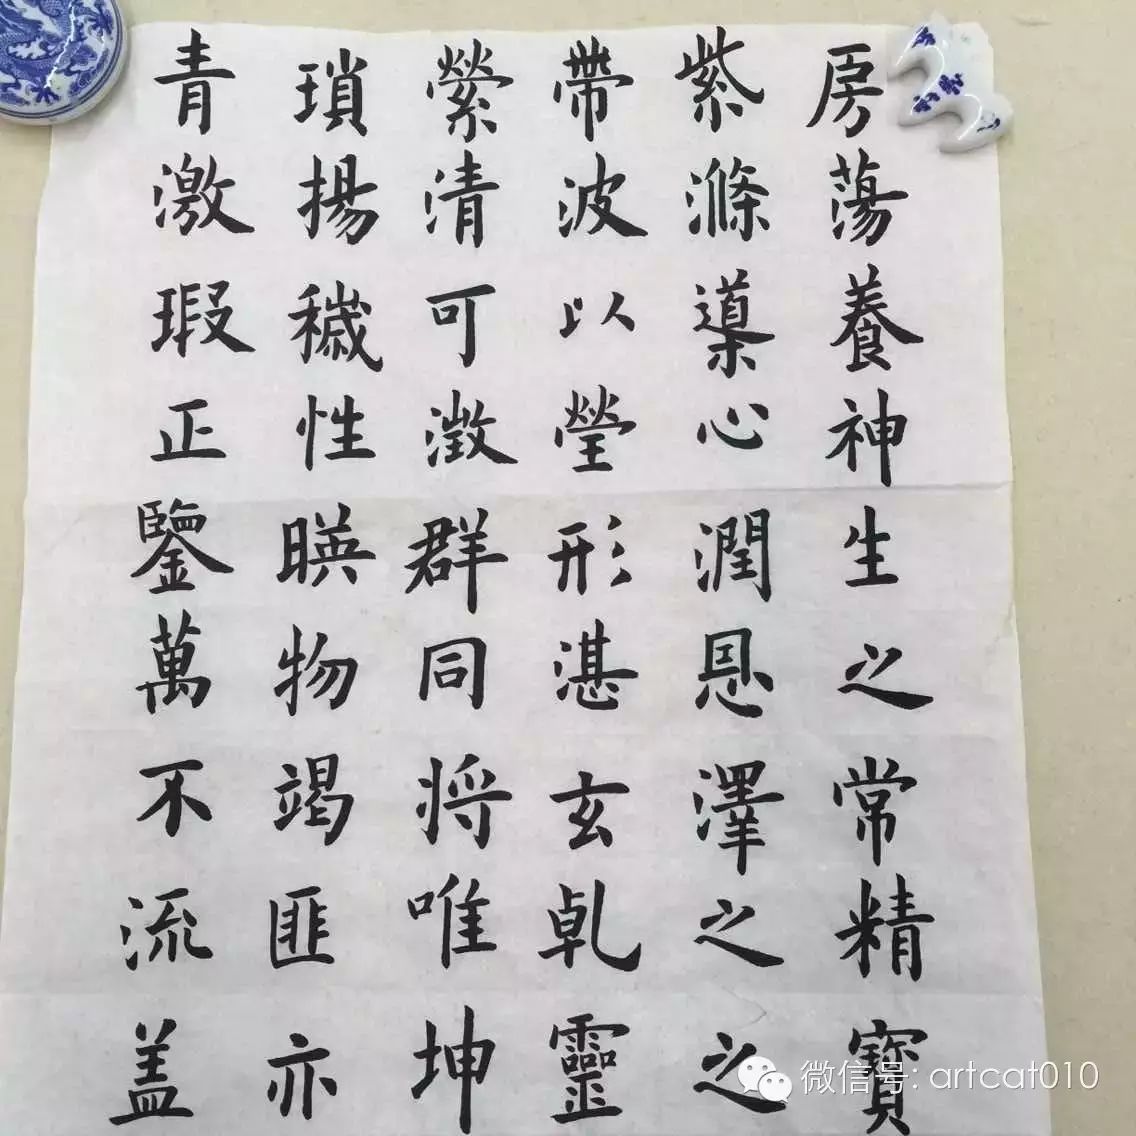 青瑣縈帶紫房
激揚清波滌蕩
瑕穢可以導養
正性澂瑩心神
鑒暎群形潤生
萬物同湛恩之
不竭将玄澤常
流匪唯乹之精
盖亦坤靈之寶
微信号: artcat010